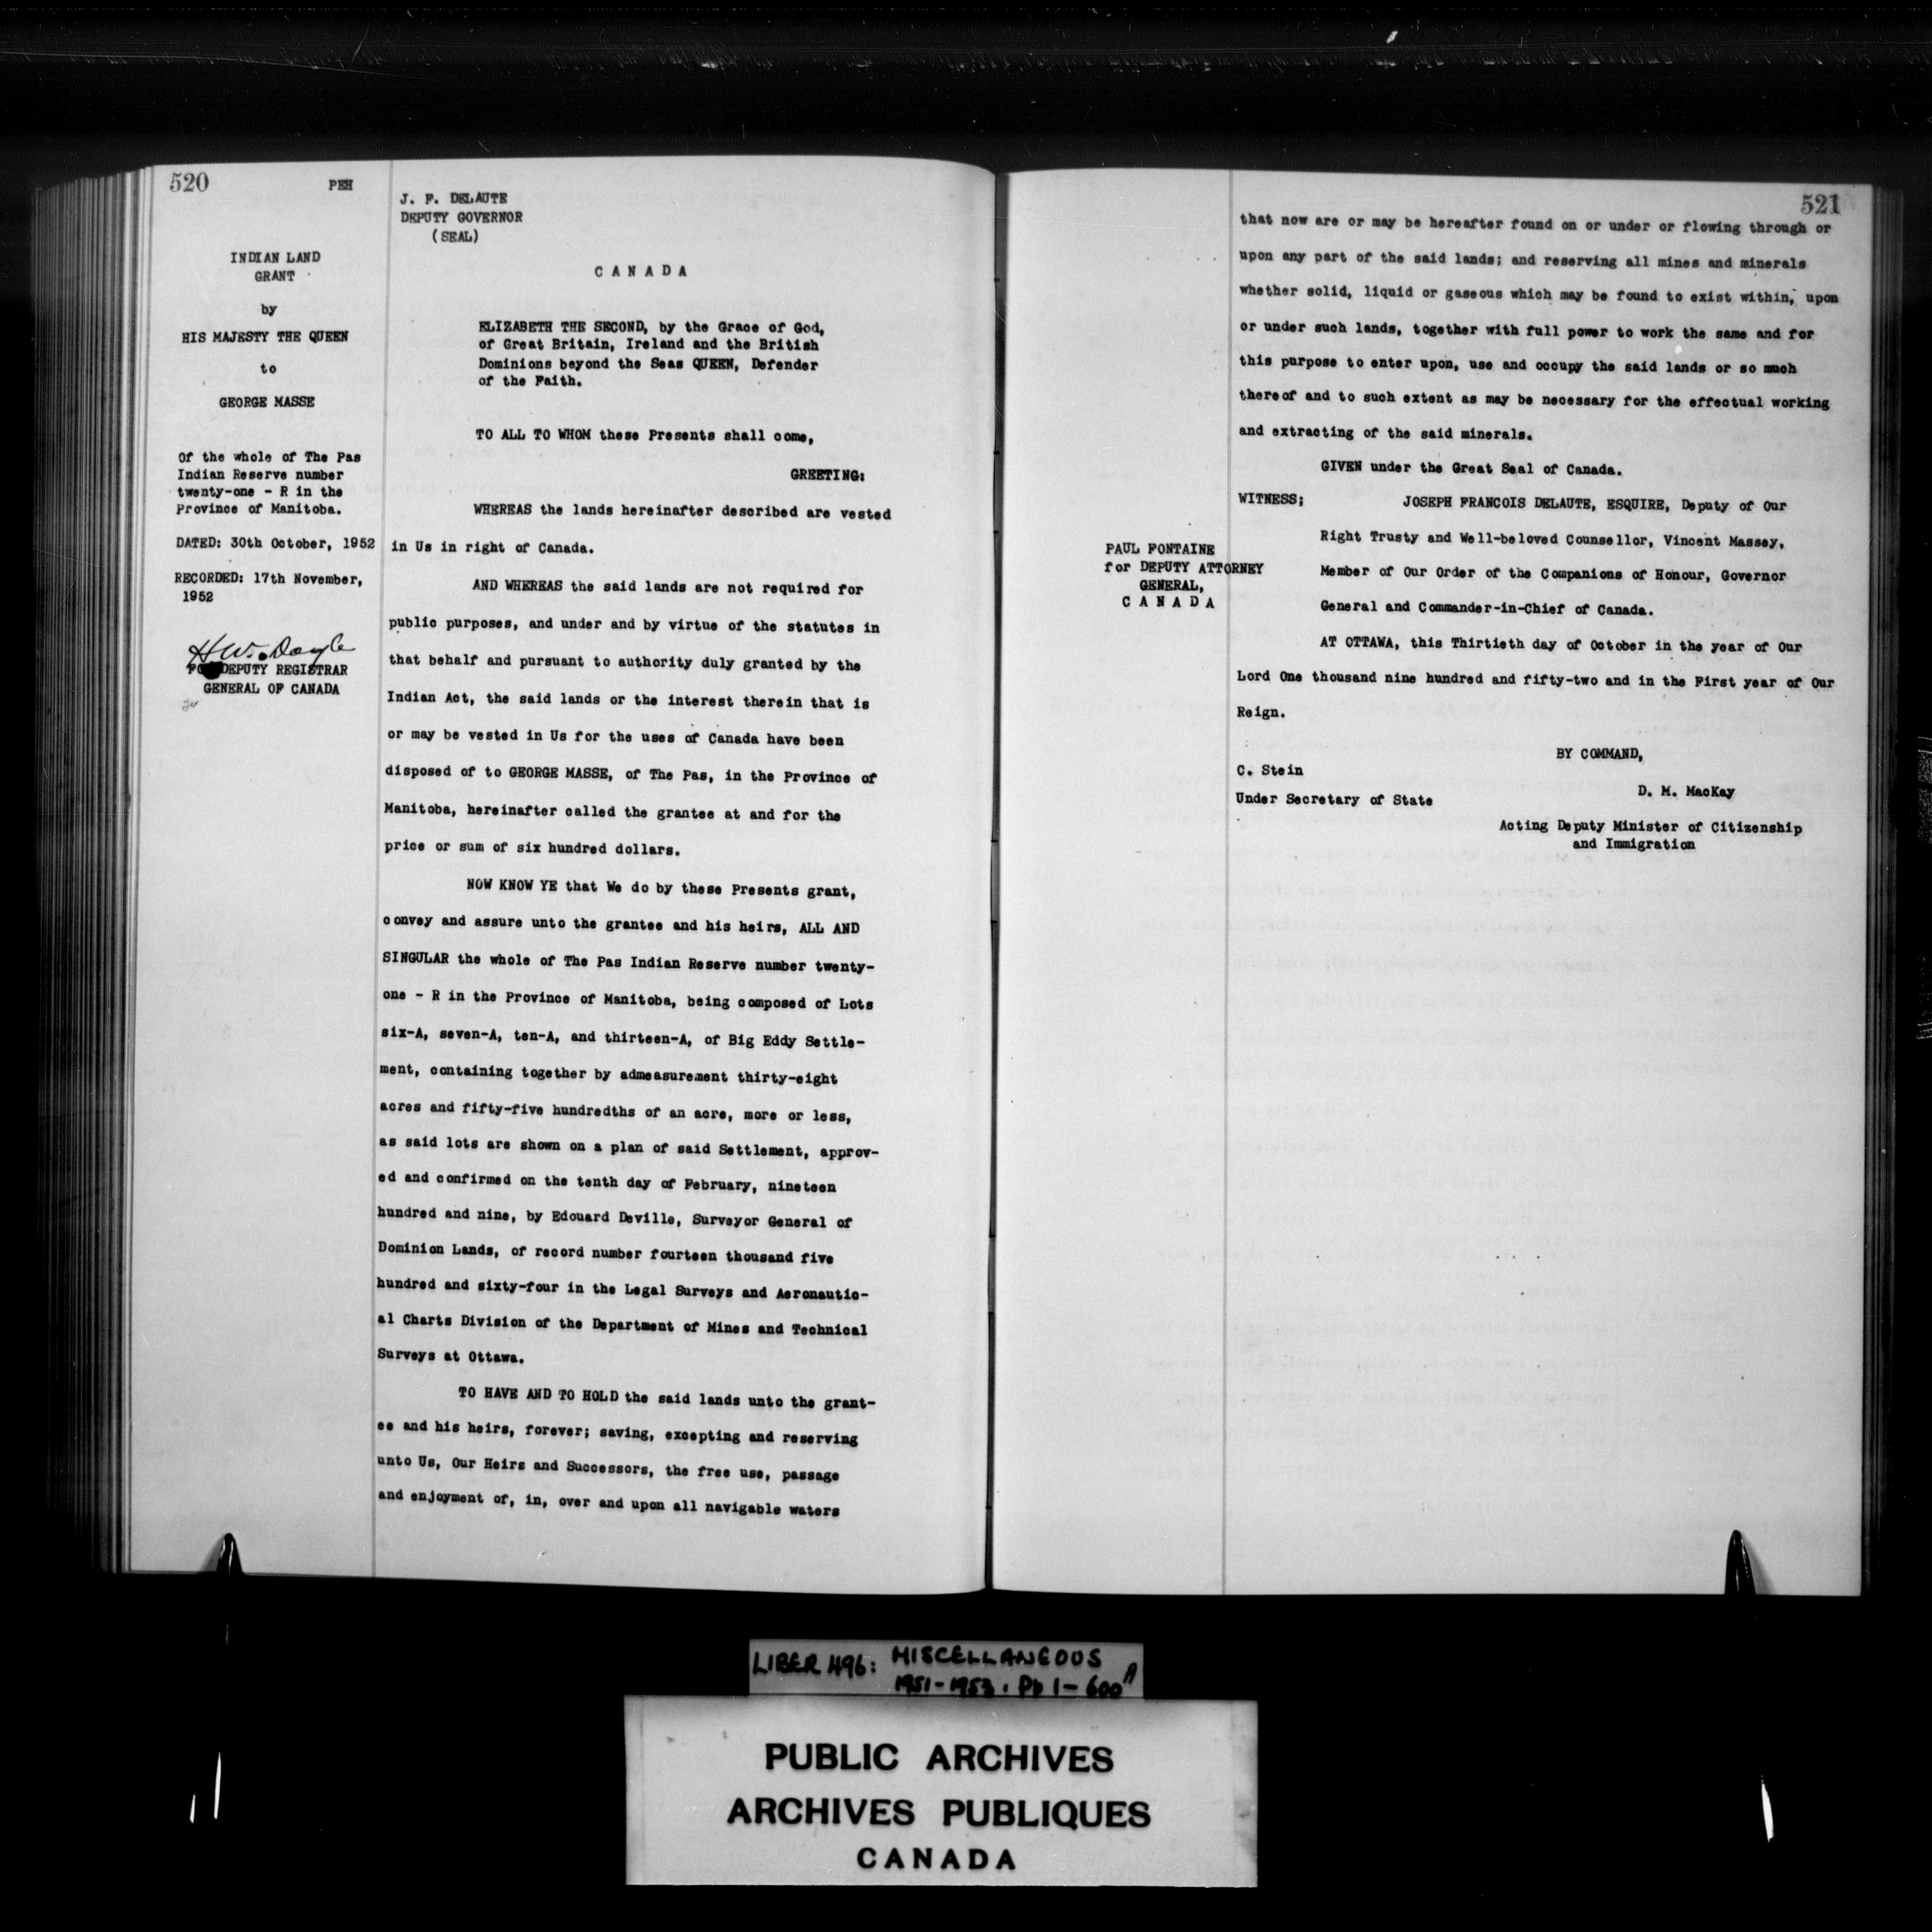 520
PEH
INDIAN LAND
GRANT
by
HIS MAJESTY THE QUEEN
to
GEORGE MASSE
Of the whole of The Pas
Indian Reserve number
twenty-one - R in the
Province of Manitoba.
DATED: 30th October, 1952
RECORDED: 17th November,
1952
DEPUTY REGISTRAR
GENERAL OF CANADA
J. F. DELAUTE
DEPUTY GOVERNOR
(SEAL)
C A N A D A
ELIZABETH THE SECOND, by the Grace of God,
of Great Britain, Ireland and the British
Dominions beyond the Seas QUEEN, Defender
of the Faith.
TO ALL TO WHOM these Presents shall come,
GREETING:
WHEREAS the lands hereinafter described are vested
in Us in right of Canada.
AND WHEREAS the said lands are not required for
public purposes, and under and by virtue of the statutes in
that behalf and pursuant to authority duly granted by the
Indian Act, the said lands or the interest therein that is
or may be vested in Us for the uses of Canada have been
disposed of to GEORGE MASSE, of The Pas, in the Province of
Manitoba, hereinafter called the grantee at and for the
price or sum of six hundred dollars.
NOW KNOW YE that We do by these Presents grant,
convey and assure unto the grantee and his heirs, ALL AND
SINGULAR the whole of The Pas Indian Reserve number twenty-
one - R in the Province of Manitoba, being composed of Lots
six-A, seven-A, ten-A, and thirteen-A, of Big Eddy Settle-
ment, containing together by admeasurement thirty-eight
acres and fifty-five hundredths of an acre, more or less,
as said lots are shown on a plan of said Settlement, approv-
ed and confirmed on the tenth day of February, nineteen
hundred and nine, by Edouard Deville, Surveyor General of
Dominion Lands, of record number fourteen thousand five
hundred and sixty-four in the Legal Surveys and Aeronautic-
al Charts Division of the Department of Mines and Technical
Surveys at Ottawa.
TO HAVE AND TO HOLD the said lands unto the grant-
ee and his heirs, forever; saving, excepting and reserving
unto Us, Our Heirs and Successors, the free use, passage
and enjoyment of, in, over and upon all navigable waters
521
that now are or may be hereafter found on or under or flowing through or
upon any part of the said lands; and reserving all mines and minerals
whether solid, liquid or gaseous which may be found to exist within, upon
or under such lands, together with full power to work the same and for
this purpose to enter upon, use and occupy the said lands or so much
thereof and to such extent as may be necessary for the effectual working
and extracting of the said minerals.
GIVEN under the Great Seal of Canada.
WITNESS; JOSEPH FRANCOIS DELAUTE, ESQUIRE, Deputy of Our
Right Trusty and Well-beloved Counsellor, Vincent Massey,
Member of Our Order of the Companions of Honour, Governor
General and Commander-in-Chief of Canada.
PAUL FONTAINE
for DEPUTY ATTORNEY
GENERAL,
C A N A D A
AT OTTAWA, this Thirtieth day of October in the year of Our
Lord One thousand nine hundred and fifty-two and in the First year of Our
Reign.
BY COMMAND,
C. Stein
Under Secretary of State
D. M. MacKay
Acting Deputy Minister of Citizenship
and Immigration
LIBER 496: MISCELLANEOUS
1951-1953. Pp 1-600A
PUBLIC ARCHIVES
ARCHIVES PUBLIQUES
CANADA